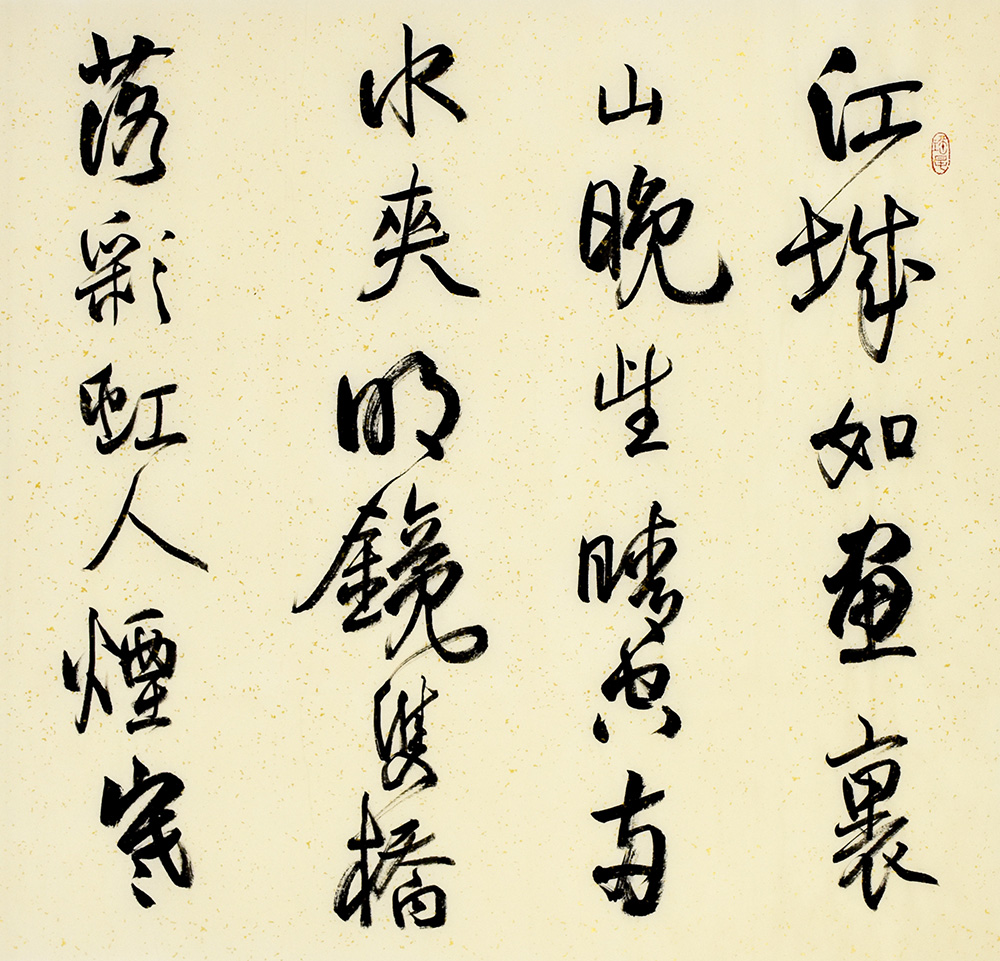 江城如畫裏
山晚望晴空兩
水夾明鏡雙橋
落彩虹人煙寒